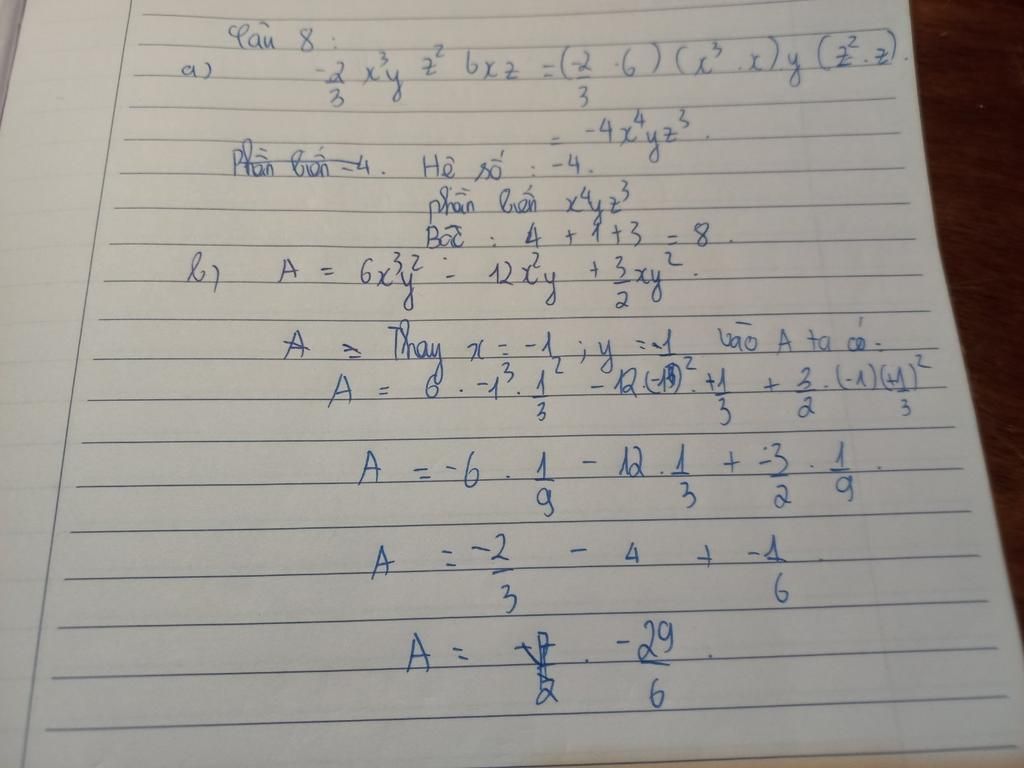 Câu 8 :
a) -2/3 x³y z² 6xz = (-2/3 · 6) (x³ . x) y (z² . z) .
= -4x⁴yz³ .
Phần biến -4. Hệ số : -4.
phần biến x⁴yz³
Bậc : 4 + 1 + 3 = 8 .
b) A = 6x³y² - 12x²y + 3/2 xy² .
A = Thay x = -1 ; y = -1 vào A ta có .
A = 6 . -1³ . 1/3² - 12 . (-1)² . +1/3 + 3/2 . (-1) (+1/3)²
A = -6 . 1/9 - 12 . 1/3 + -3/2 . 1/9 .
A = -2/3 - 4 + -1/6
A = -29/6 .